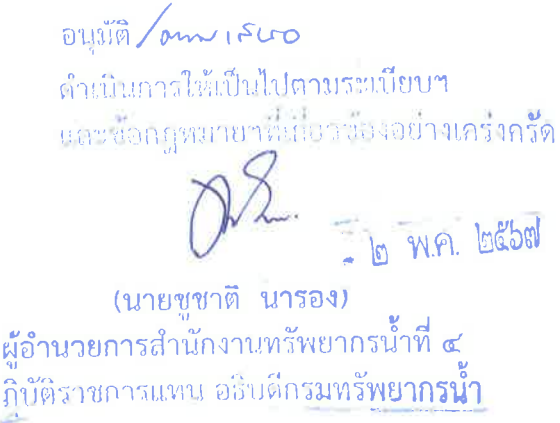 อนุมัติ/ตามเสนอ
ดำเนินการให้เป็นไปตามระเบียบฯ
และข้อกฎหมายฯที่เกี่ยวข้องอย่างเคร่งครัด
- ๒ พ.ค. ๒๕๖๗
(นายชูชาติ นารอง)
ผู้อำนวยการสำนักงานทรัพยากรน้ำที่ ๔
ฏิบัติราชการแทน อธิบดีกรมทรัพยากรน้ำ